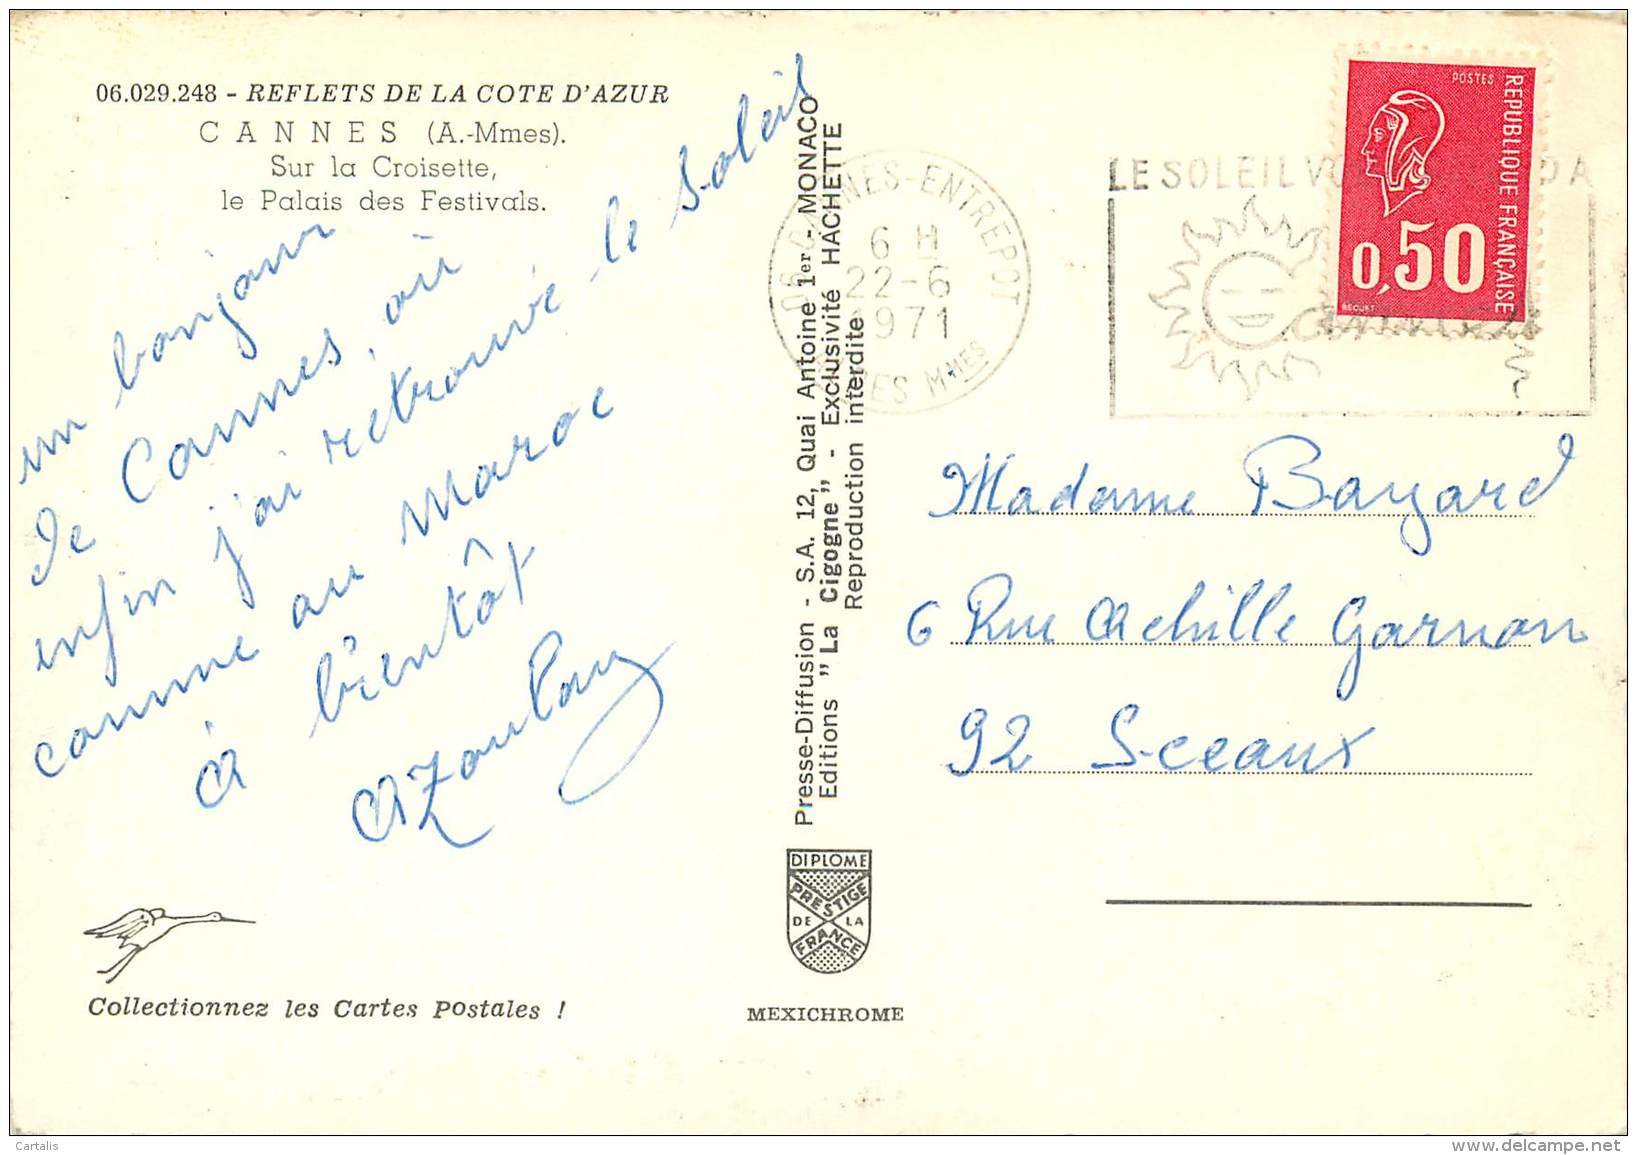 06.029.248 - REFLETS DE LA COTE D'AZUR
CANNES (A.-Mmes).
Sur la Croisette,
le Palais des Festivals.
un bonjour
de Cannes, où
enfin j'ai retrouvé le soleil
comme au Maroc
à bientôt
AZoulay
Collectionnez les Cartes Postales !
Presse-Diffusion - S.A. 12, Quai Antoine 1er - MONACO
Editions "La Cigogne" - Exclusivité HACHETTE
Reproduction interdite
DIPLOME
PRESTIGE
DE LA
FRANCE
MEXICHROME
06 CANNES-ENTREPOT
6 H
22-6
1971
MMES
LE SOLEIL
POSTES
REPUBLIQUE FRANÇAISE
0,50
BEQUET
Madame Bayard
6 Rue Achille Garnon
92 S-ceaux
Cartalis
www.delcampe.net